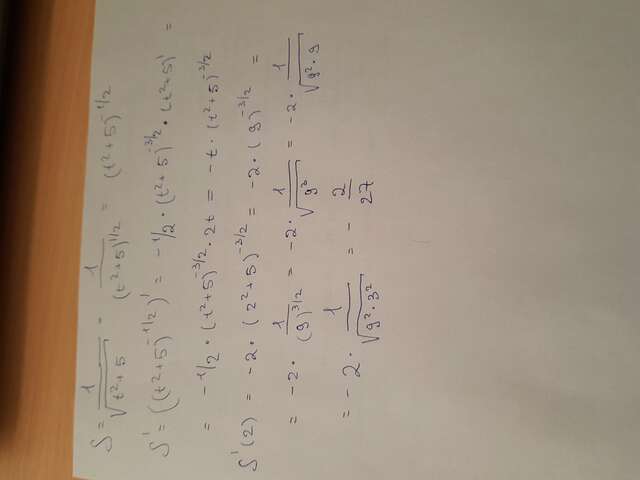 S = 1/√(t²+5) = 1/(t²+5)^1/2 = (t²+5)^-1/2
S' = ((t²+5)^-1/2)' = -1/2 · (t²+5)^-3/2 · (t²+5)' =
= -1/2 · (t²+5)^-3/2 · 2t = -t · (t²+5)^-3/2
S'(2) = -2 · (2²+5)^-3/2 = -2 · (9)^-3/2 =
= -2 · 1/(9)^3/2 = -2 · 1/√(9³) = -2 · 1/√(9²·9)
= -2 · 1/√(9²·3²) = - 2/27